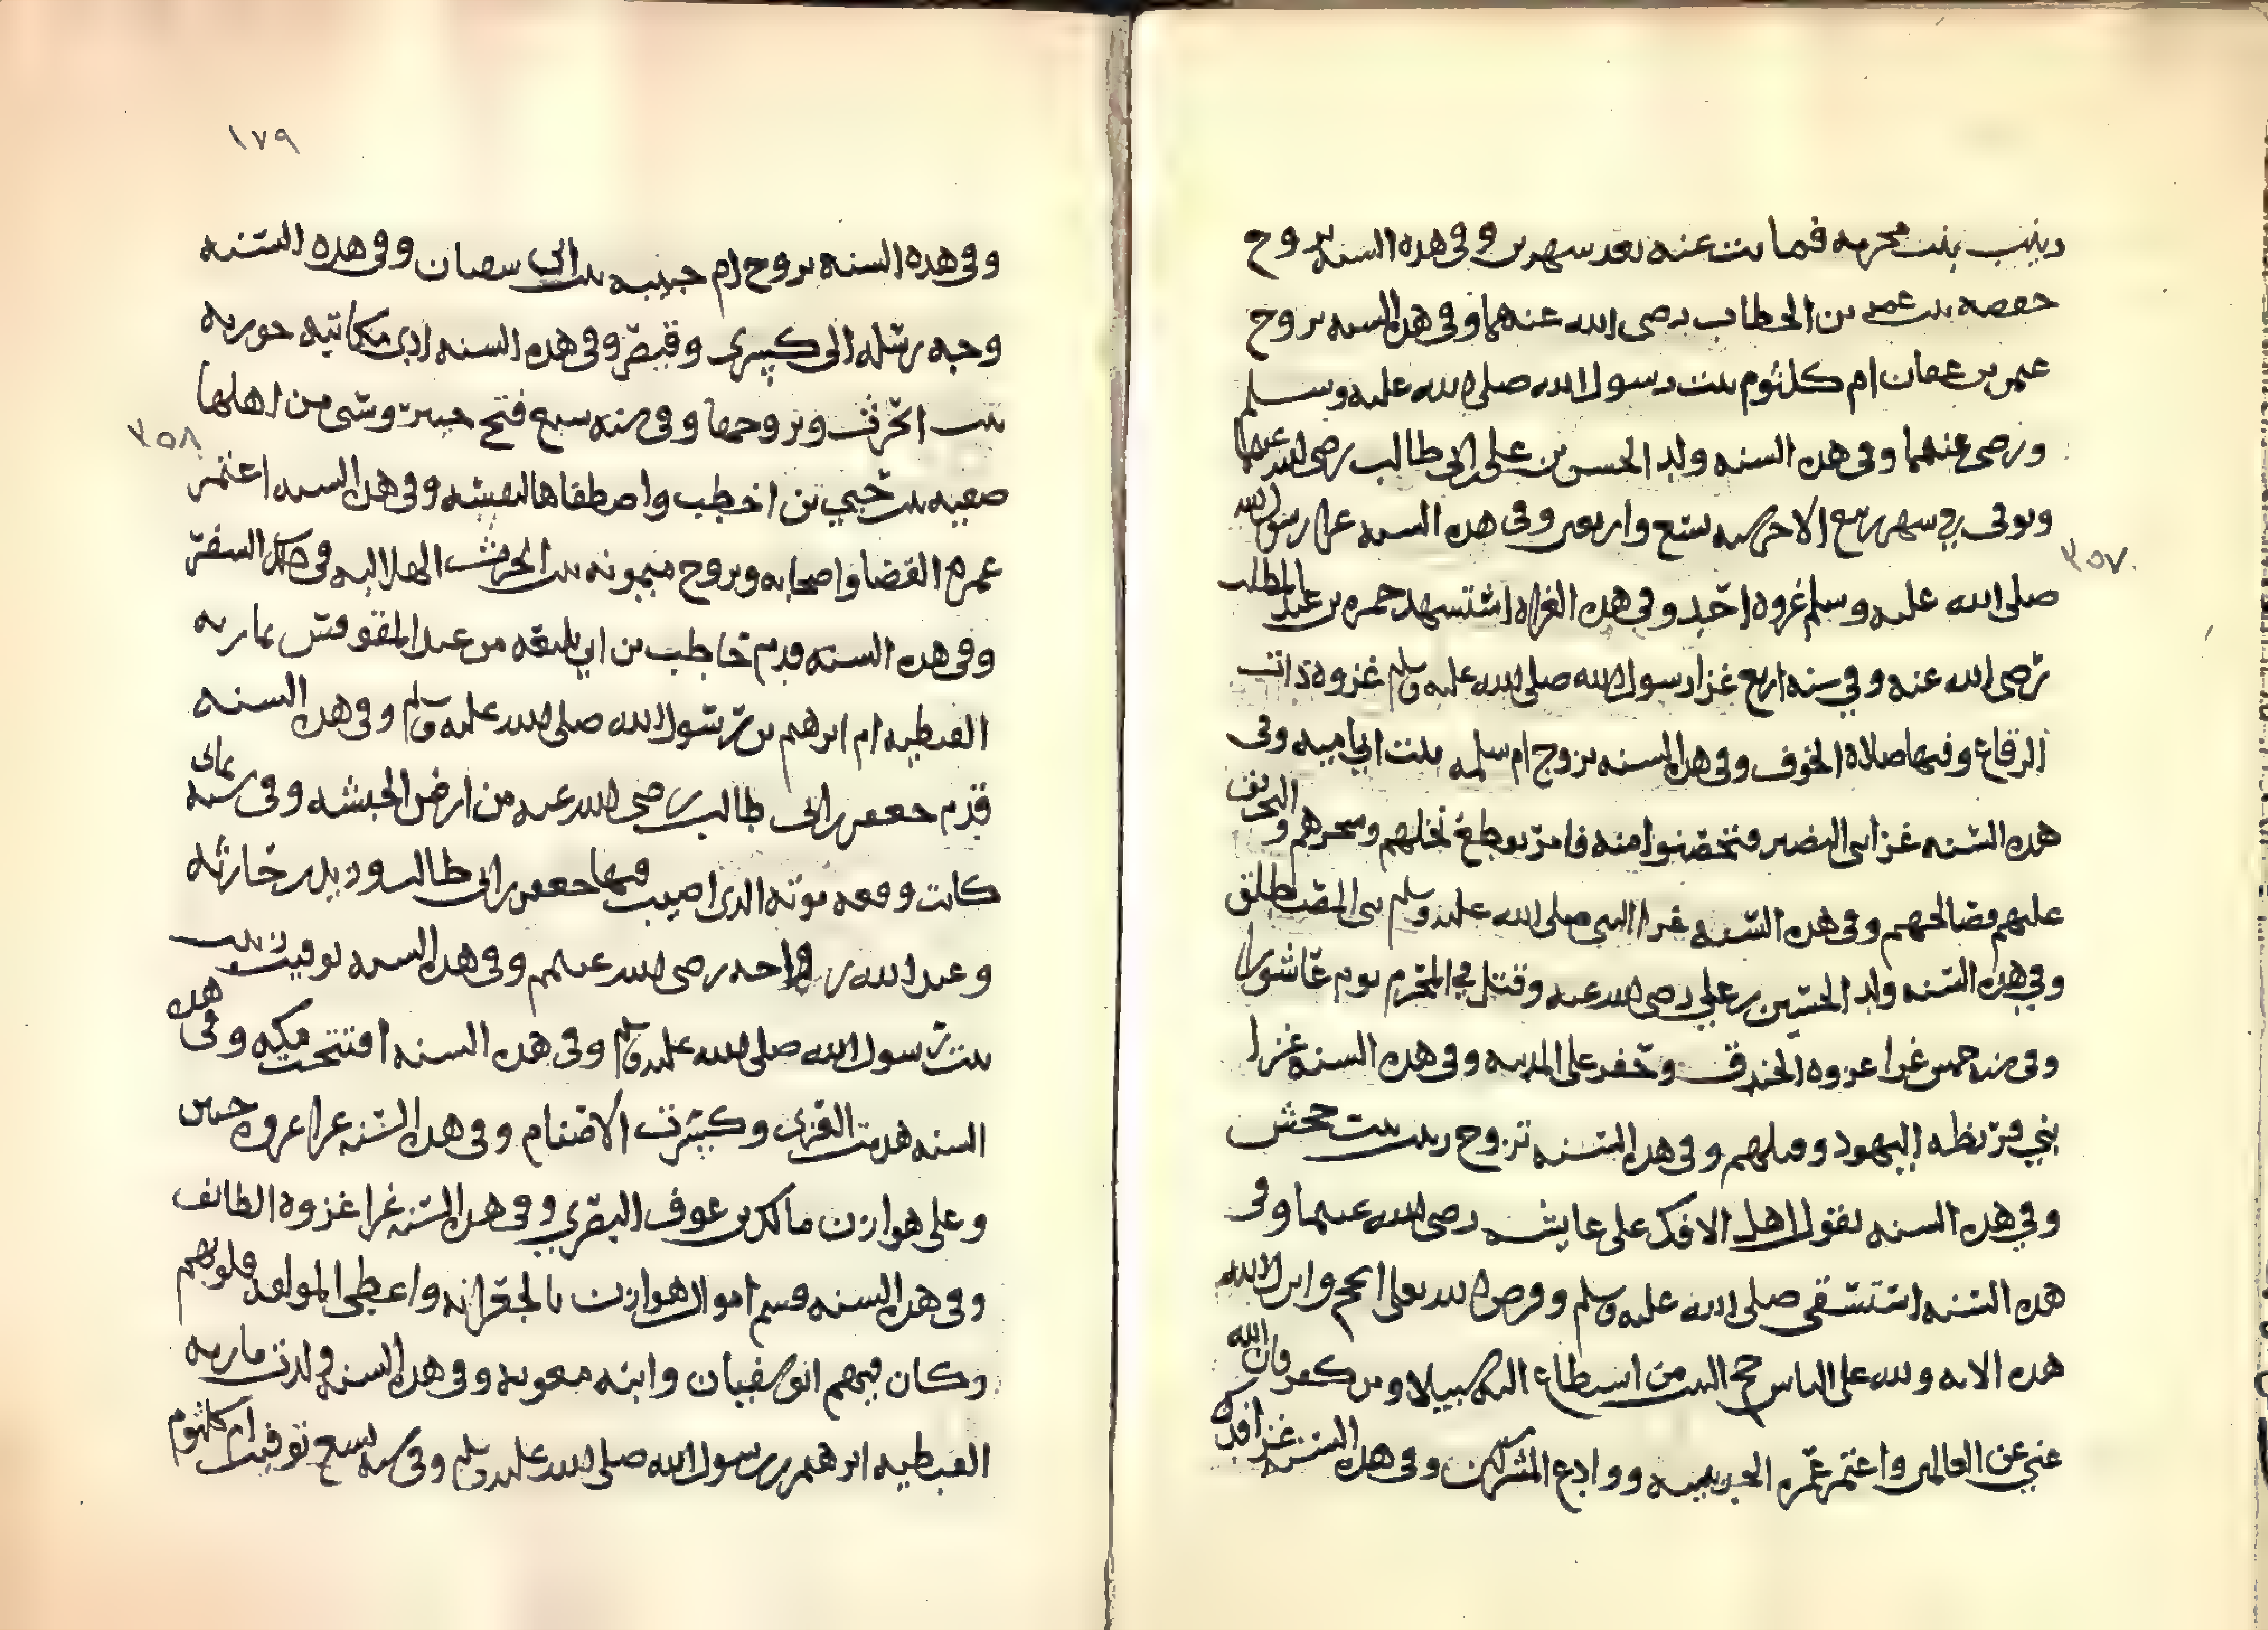 زينب بنت محرمه فماتت عنه بعد شهرين وفي هذه السنه تزوج
حفصه بنت عمر بن الخطاب رضى الله عنهما وفي هذه السنه تزوج
عثمن بن عفان ام كلثوم بنت رسول الله صلى الله عليه وسلم
ورضى عنهما وفي هذه السنه ولد الحسن بن على ابن ابي طالب رضى الله عنهما
وتوفى في شهر ربيع الاخر سنه تسع واربعين وفي هذه السنه غزا رسول الله
٣٥٧
صلى الله عليه وسلم غزوه احد وفي هذه الغزاه استشهد حمزه بن عبد المطلب
رضى الله عنه وفي سنه اربع غزا رسول الله صلى الله عليه وسلم غزوة ذات
الرقاع وفيها صلاة الخوف وفي هذه السنه تزوج ام سلمه بنت ابي اميه وفي
هذه السنه غزا بني النضير فتحصنوا منه فامر بقطع نخلهم وشجرهم والتحريق
عليهم فصالحهم وفي هذه السنه غزا النبي صلى الله عليه وسلم بني المصطلق
وفي هذه السنه ولد الحسين بن علي رضى الله عنه وقتل في المحرم يوم عاشورا
وفي سنه خمس غزا غزوه الخندق وتحفر على المدينه وفي هذه السنه غزا
بني قريظه اليهود وقتلهم وفي هذه السنه تزوج زينب بنت جحش
وفي هذه السنه تقول اهل الافك على عايشه رضى الله عنهما وفي
هذه السنه استسقى صلى الله عليه وسلم وفرض الله تعالى الحج وانزل الله
هذه الايه ولله على الناس حج البيت من استطاع اليه سبيلا ومن كفر فان الله
غني عن العالمين واعتمر عمره الحديبيه ووادع المشركين وفي هذه السنه غزا فدك
١٧٩
وفي هذه السنه تزوج ام حبيبه بنت ابي سفيان وفي هذه السنه
وجه رسله الى كسرى وقيصر وفي هذه السنه ادى مكاتبه جوريه
بنت الحرث وتزوجها وفي سنه سبع فتح خيبر وسبى من اهلها
٣٥٨
صفيه بنت حيي بن اخطب واصطفاها لنفسه وفي هذه السنه اعتمر
عمره القضا واصحابه وتزوج ميمونه بنت الحرث الهلاليه في هذا السفر
وفي هذه السنه قدم حاطب بن ابي بلتعه من عند المقوقس بماريه
القبطيه ام ابرهيم بن رسول الله صلى الله عليه وسلم وفي هذه السنه
قدم جعفر بن ابي طالب رضى الله عنه من ارض الحبشه وفي سنه ثمان
كانت وقعه موته الذى اصيب فيها جعفر بن ابي طالب وزيد بن حارثه
وعبد الله بن رواحه رضى الله عنهم وفي هذه السنه توفيت زينب
بنت رسول الله صلى الله عليه وسلم وفي هذه السنه افتتحت مكه وفي هذه
السنه هدمت العزى وكسرت الاصنام وفي هذه السنه غزا غزوه حنين
وعلى هوازن مالك بن عوف النصري وفي هذه السنه غزا غزوة الطائف
وفي هذه السنه قسم اموال هوازن بالجعرانه واعطى المولفه قلوبهم
وكان فيهم ابو سفيان وابنه معويه وفي هذه السنه ولدت ماريه
القبطيه ابرهيم بن رسول الله صلى الله عليه وسلم وفي سنه تسع توفيت ام كلثوم